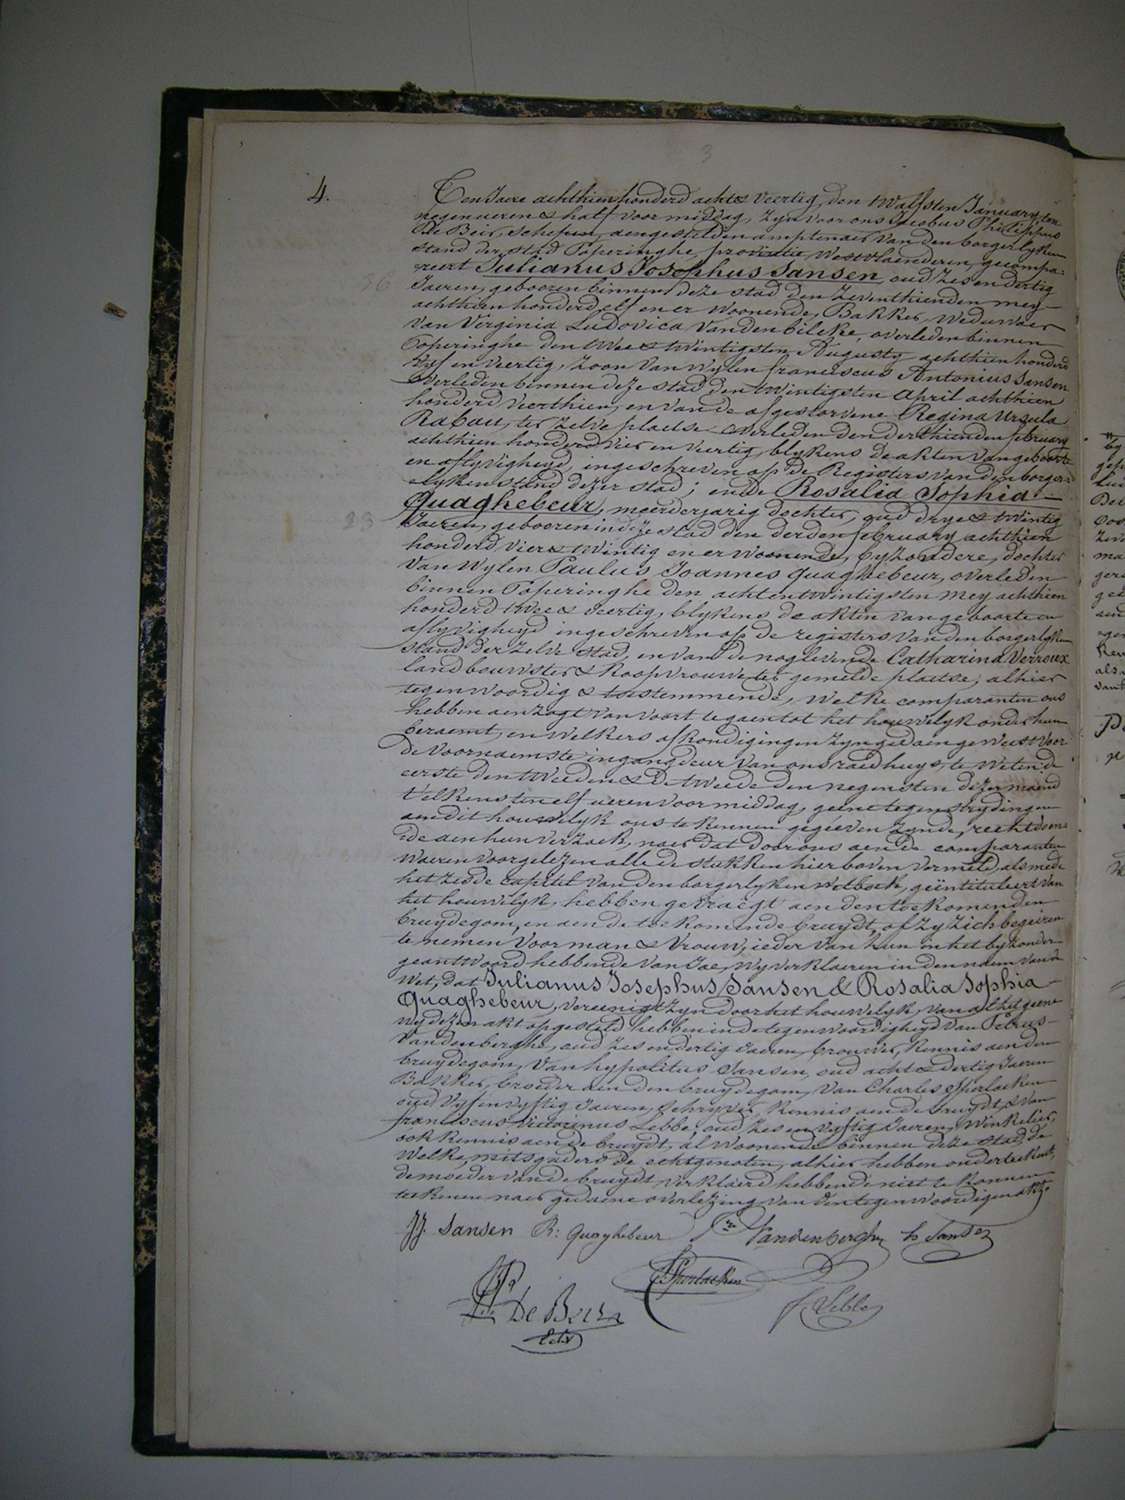 3
4.
Ten Jaere achthien honderd acht & veertig, den twalfsten January ten
negen ueren & half voormiddag, Zyn voor ons Jacobus Philippus
De Beir, schepen, aengestelden amptenaer van den borgerlyken
stand der stad Poperinghe, provintie Westvlaenderen, gecompa-
reert Julianus Josephus Sansen, oud Zes en dertig
36
Jaeren, gebooren binnen deze stad den Zeventhienden mey
achthien honderd elf en er woonende, Bakker, Weduwaer
van Virginia Ludovica Vanden Bilcke, overleden binnen
Poperinghe den twee & twintigsten Augusty achthien honderd
Vyf en veertig, Zoon van Wylen franciscus Antonius Sansen
overleden binnen deze stad den twintigsten April achthien
honderd veerthien, en van de afgestorvene Regina Ursula
Rabau, ter zelve plaetse overleden den derthienden february
achthien honderd vier en veertig, blykens de akten van geboorte
en aflyvigheyd, ingeschreven op de Registers van den borger-
lyken stand dezer stad; ende Rosalia Sophia
Quaghebeur, meerderjarig dochter, oud drye & twintig
23
Jaeren, gebooren in deze stad den derden february achthien
honderd vier & twintig en er woonende, byzondere, dochter
van Wylen Paulus Joannes Quaghebeur, overleden
binnen Poperinghe den acht en twintigsten mey achthien
honderd twee & veertig, blykens de akten van geboorte en
aflyvigheyd ingeschreven op de registers van den borgerlyken
stand der zelve stad, en van de noglevende Catharina Verroux
landbouwster & Koopvrouwe ter gemelde plaetse, alhier
tegenwoordig & toestemmende, Welke comparanten ons
hebben aenzogt van voort te gaen tot het houwelyk onder hun
beraemt, en welkers afkondigingen zyn gedaen geweest voor
de voornaemste ingangdeur van ons raedhuys, te weten de
eerste den tweeden & de tweede den negensten dezer maend
telkens ten elf ueren voormiddag, geene tegenstrydingen
aen dit houwelyk ons te kennen gegeeven zynde, recht doen-
de aen hun verzoek, naer dat door ons aen de comparanten
waeren voorgelezen alle de stukken hier boven vermeld, alsmede
het zesde capittel van den borgerlyken wetboek, geïntituleert van
het houwelyk, hebben gevraegt aen den toekomenden
bruydegom, en aen de toekomende bruydt, of zy zich begeeren
te nemen voor man & vrouw, ieder van hun in het byzonder
geantwoord hebbende van Jae, wy verklaeren in den naem van de
Wet, dat Julianus Josephus Sansen & Rosalia Sophia
Quaghebeur, vereenigt zyn door het houwelyk, van al het geene
wy dezen akt opgesteld hebben in de tegenwoordigheyd van Petrus
Vandenberghe, oud Zes en dertig Jaeren, brouwer, Kennis aen den
bruydegom, Van hypolitus Sansen, oud acht & dertig Jaeren
Bakker, broeder aen den bruydegom, Van Charles Sperlaeken
oud Vyf en vyftig Jaeren, schryver, Kennis aen de bruydt, & van
franciscus Victorinus Lebbe, oud Zes en vyftig Jaeren, Winkelier,
ook Kennis aen de bruydt, al woonende binnen deze stad, de
Welke, mitsgaders de echtgenoten, alhier hebben onderteekent,
de moeder van de bruydt verklaerd hebbende niet te konnen
teekenen naer gedaene overlezing van den tegenwoordigen akt
JJ. Sansen R: Quaghebeur Vandenberghe h Sansen
De Beir
F. Lebbe